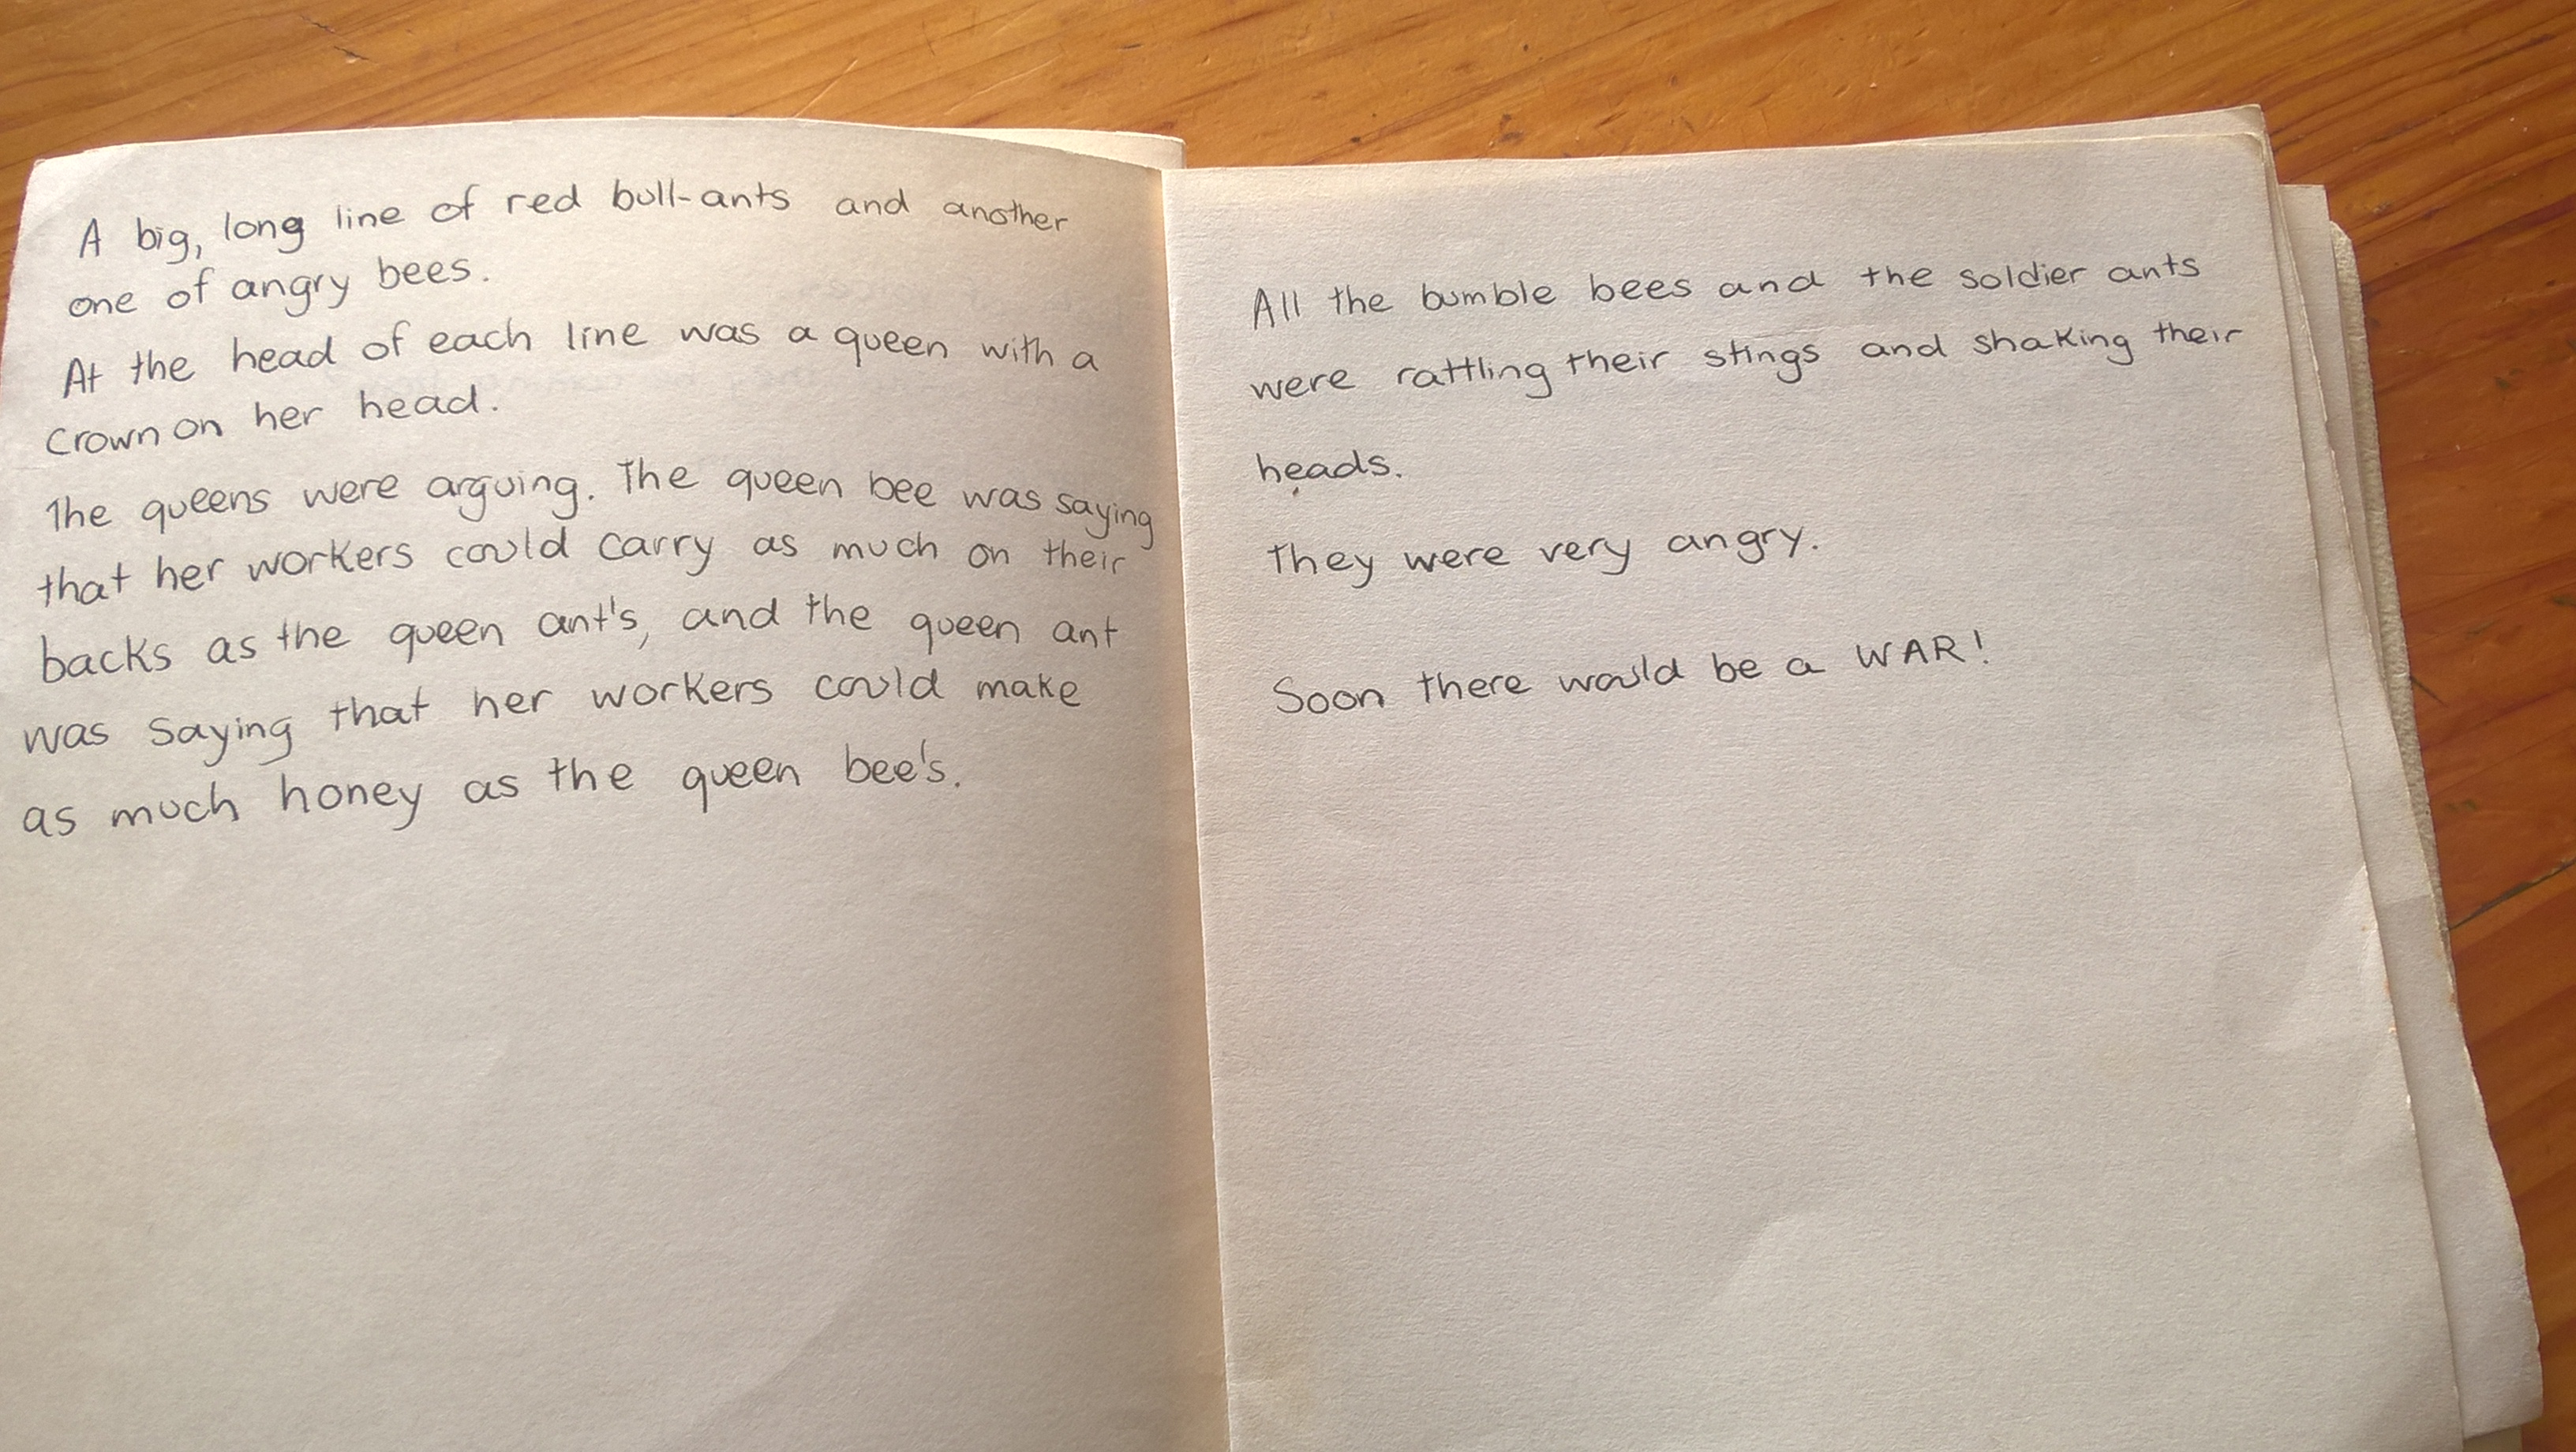 A big, long line of red bull-ants and another
one of angry bees.
At the head of each line was a queen with a
crown on her head.
The queens were arguing. The queen bee was saying
that her workers could carry as much on their
backs as the queen ant's, and the queen ant
was saying that her workers could make
as much honey as the queen bee's.
All the bumble bees and the soldier ants
were rattling their stings and shaking their
heads.
They were very angry.
Soon there would be a WAR!